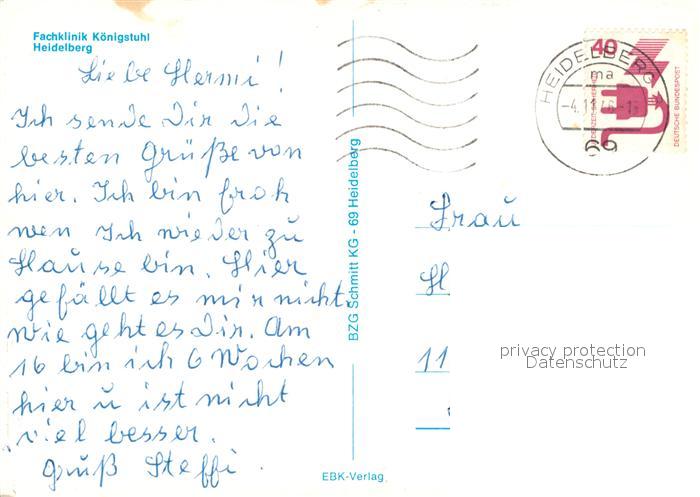 Fachklinik Königstuhl
Heidelberg
Liebe Hermi!
Ich sende Dir die
besten Grüße von
hier. Ich bin froh
wen Ich wieder zu
Hause bin. Hier
gefällt es mir nicht.
wie geht es Dir. Am
16 bin ich 6 Wochen
hier u ist nicht
viel besser.
Gruß Steffi.
BZG Schmitt KG - 69 Heidelberg
EBK-Verlag
40
DEUTSCHE BUNDESPOST
HEIDELBERG
ma
69
Frau
H
11
privacy protection
Datenschutz